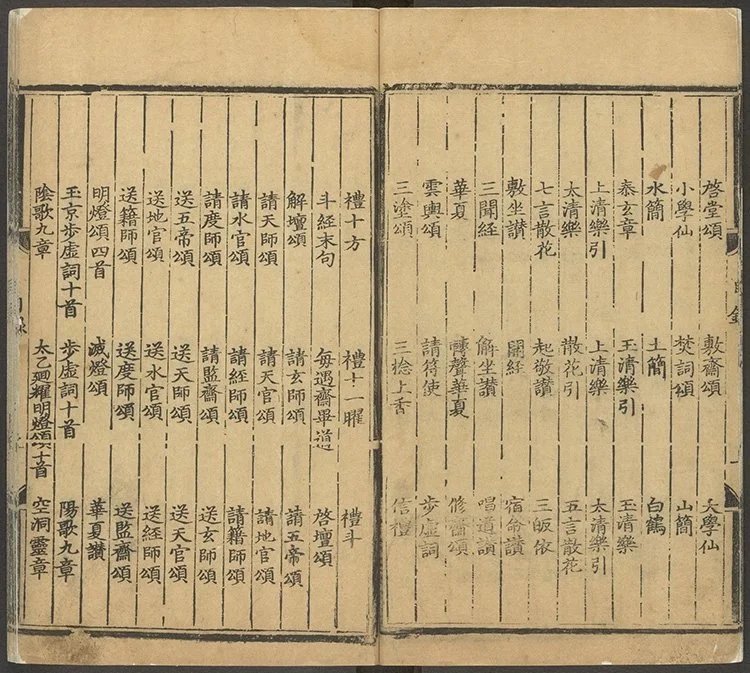 啓堂頌 敷齋頌 大學仙
小學仙 焚詞頌 山簡
水簡 土簡 白鶴
泰玄章 玉清樂引 玉清樂
上清樂引 上清樂引 太清樂引
太清樂 散花引 五言散花
七言散花 起敬讃 三皈依
敷坐讃 開經 宿命讃
三聞經 解坐讃 唱道讃
華夏 轉聲華夏 修齋頌
雲輿頌 請符使 步虛詞
三塗頌 三捻上香 信禮
禮十方 禮十一曜 禮斗
斗經末句 每過齋畢道 啓壇頌
解壇頌 請玄師頌 請五帝頌
請天師頌 請天官頌 請地官頌
請水官頌 請經師頌 請籍師頌
請度師頌 請監齋頌 送玄師頌
送五帝頌 送天師頌 送天官頌
送地官頌 送水官頌 送經師頌
送籍師頌 送度師頌 送監齋頌
明燈頌四首 滅燈頌 華夏讃
玉京步虛詞十首 步虛詞十首 陽歌九章
陰歌九章 太乙廻耀明燈頌十首 空洞靈章